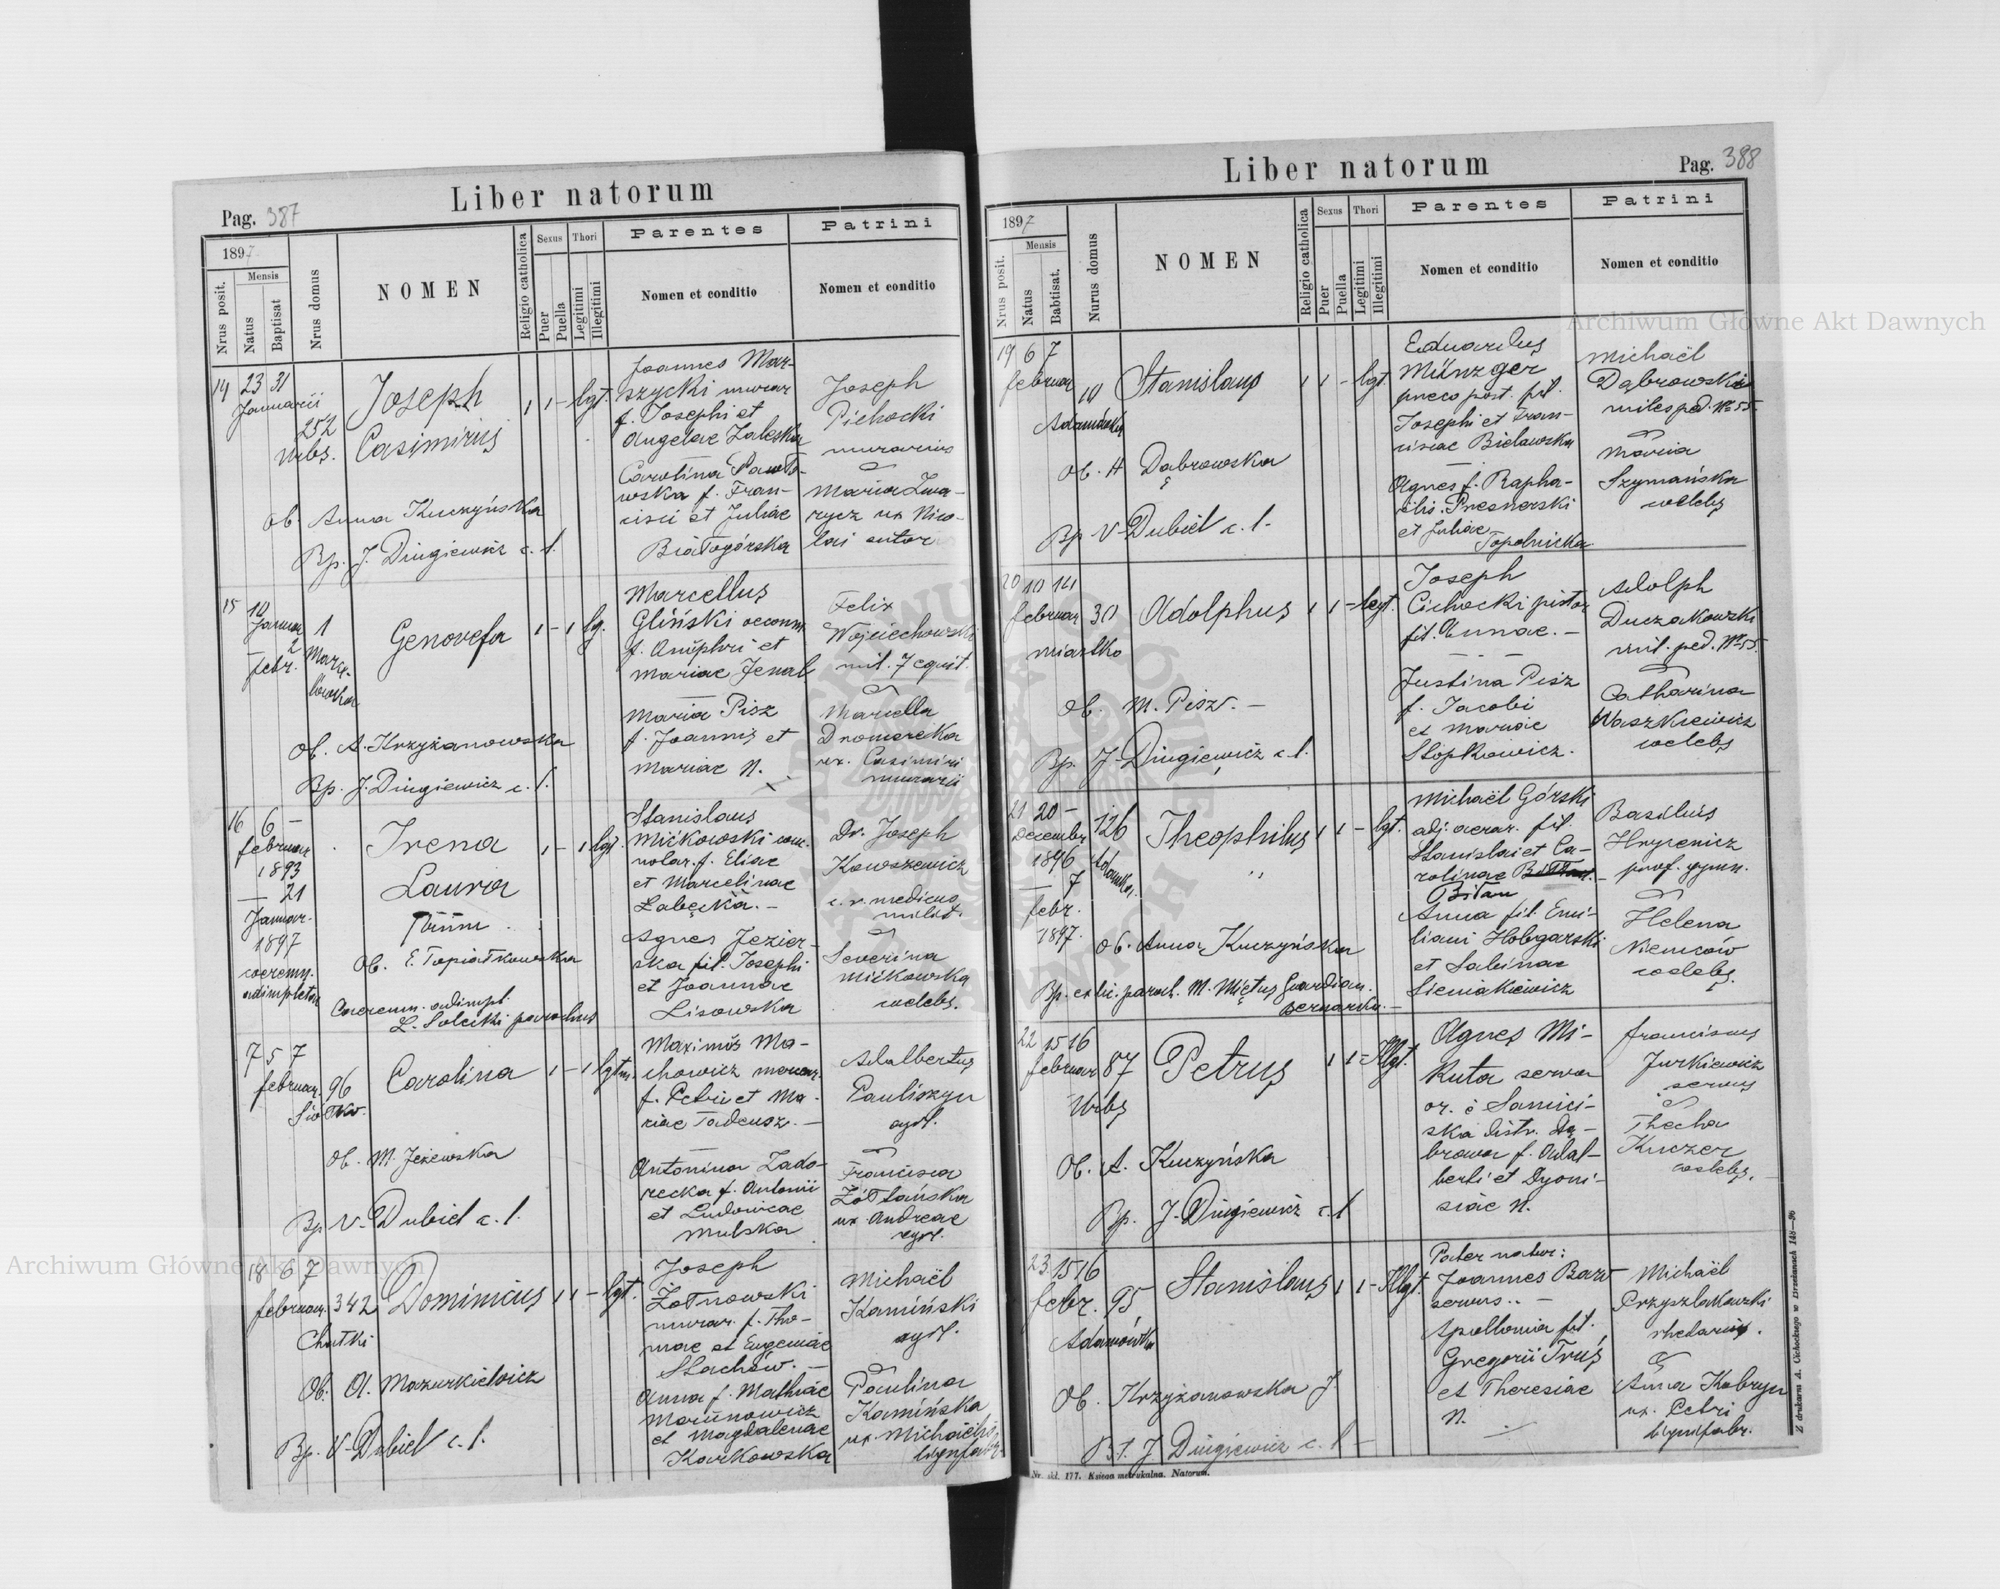 Liber natorum
Pag. 387
1897
Mensis
Nrus posit.
Natus
Baptisat
Nrus domus
NOMEN
Religio catholica
Sexus
Puer
Puella
Thori
Legitimi
Illegitimi
Parentes
Nomen et conditio
Patrini
Nomen et conditio
14 23 31
Januarii
252
Urbs.
Joseph
Casimirus
1 1 - lgt.
Joannes Mar-
szycki murar
f. Josephi et
Angelae Zaleska
Carolina Pawło-
wska f. Fran-
cisci et Juliae
Białogórska
Joseph
Pichocki
murarius
Maria Lwa-
rycz ux Nico-
lai sutor
Ob. Anna Kuczyńska
Bp. J. Dingiewicz c. l.
15 10
Januar
2
febr.
1
Genovefa
1 - 1 lg.
Marcellus
Gliński oeconm
f. Onuphri et
Mariae Jenal
Maria Pisz
f. Joannis et
Mariae N.
Felix
Wojciechowski
mil. 7 equit.
Mariella
Dnomerecka
ux. Casimiri
murarii
Ob. A. Krzyżanowska
Bp. J. Dingiewicz c. l.
16 6 -
februar
1893
21
Januar.
1897
caeremn.
adimpletae
Irena
Laura
1 - 1 lgt.
Stanislaus
Mićkowski
f. Eliae
et Marcelinae
Łabęcka. -
Agnes Jezier-
ska fil. Josephi
et Joannae
Lisowska
Dr. Joseph
Kowszewicz
c. r. medicus
milit.
Severina
Mićkowska
coelebs.
Ob. E. Topiatkowska
Caeremn. adimpl.
L. Solecki parochus
7 5 7
februar.
96
Siołko
Carolina
1 - 1 lgtm.
Maximus Ma-
chowicz murar.
f. Petri et Ma-
riae Tadeusz. -
Antonina Zado-
recka f. Antonii
et Ludovicae
Mulska
Adalbertus
Pauliszyn
agr.
Francisca
Żółtańska
ux Andreae
agr.
Ob. M. Jeżewska
Bp V. Dubiel c. l.
18 6 7
februar.
342
Chatki
Dominicus
1 1 - lgt.
Joseph
Żołnowski
murar. f. Tho-
mae et Eugeniae
Stachów. -
Anna f. Mathiae
Marunowicz
et Magdalenae
Karkowska
Michaël
Kamiński
agr.
Paulina
Kamińska
ux. Michaëlis
Ob. A. Mazurkiewicz
Bp. V. Dubiel c. l.
Liber natorum
Pag. 388
1897
Mensis
Nrus posit.
Natus
Babtisat.
Nurus domus
NOMEN
Religio catholica
Sexus
Puer
Puella
Thori
Legitimi
Illegitimi
Parentes
Nomen et conditio
Patrini
Nomen et conditio
19 6 7
februar
10
Adamówka
Stanislaus
1 1 - lgt.
Eduardus
Münzger
praeco post. fil.
Josephi et Fran-
ciscae Bielawska
Agnes f. Rapha-
ëlis Presnerski
et Juliae
Topolnicka
Michaël
Dąbrowski
miles ped. No 55.
Maria
Szymańska
coelebs
Ob. H Dąbrowska
Bp V. Dubiel c. l.
20 10 14
februar 30
Miastko
Adolphus
1 1 - lgt.
Joseph
Cichocki pistor
fil. Annae. -
Justina Pisz
f. Jacobi
et Mariae
Stopkowicz.
Adolph
Duczakowski
mil. ped. No 55.
Catharina
Waszkiewicz
coelebs
Ob. M. Pisz. -
Bp. J. Dingiewicz c. l.
21 20 -
Decembr
1896
7
febr.
1897.
126
Adamka.
Theophilus
1 1 - lgt.
Michaël Górski
adj. aerar. fil.
Stanislai et Ca-
rolinae
Bitan
Anna fil. Emi-
liani Hobgarski
et Sabinae
Sieniakiewicz
Basilius
Hrycenicz
prof. gymn.
Helena
Niemców
coelebs.
Ob. Anna Kuczyńska
Bp. ex lic. paroch. M. Miętus Guardian.
Bernardin. -
22 15 16
februar 87
Urbs
Petrus
1 1 - Illgt.
Agnes Mi-
kuta serva
or. e Samici-
ska distr. Dą-
browa f. Adal-
berti et Dyoni-
siae N.
Franciscus
Jurkiewicz
servus
Thecla
Kuczer
coelebs.
Ob. A. Kuczyńska
Bp. J. Dingiewicz c. l
23 15 16
febr. 95
Adamówka
Stanislaus
1 1 - Illgt.
Pater natur:
Joannes Baw
servus.. -
Apollonia fil.
Gregorii Truś
et Theresiae
N.
Michaël
Przyszlakowski
rhedarius.
Anna Kobryn
ux. Petri
lignifabr.
Ob. Krzyżanowska J.
Bp. J. Dingiewicz c. l -
Nr. skl. 177. Księga metrykalna. Natorum.
Z drukarni A. Cichockiego w Brzeżanach 148—96
Archiwum Główne Akt Dawnych
Archiwum Główne Akt Dawnych